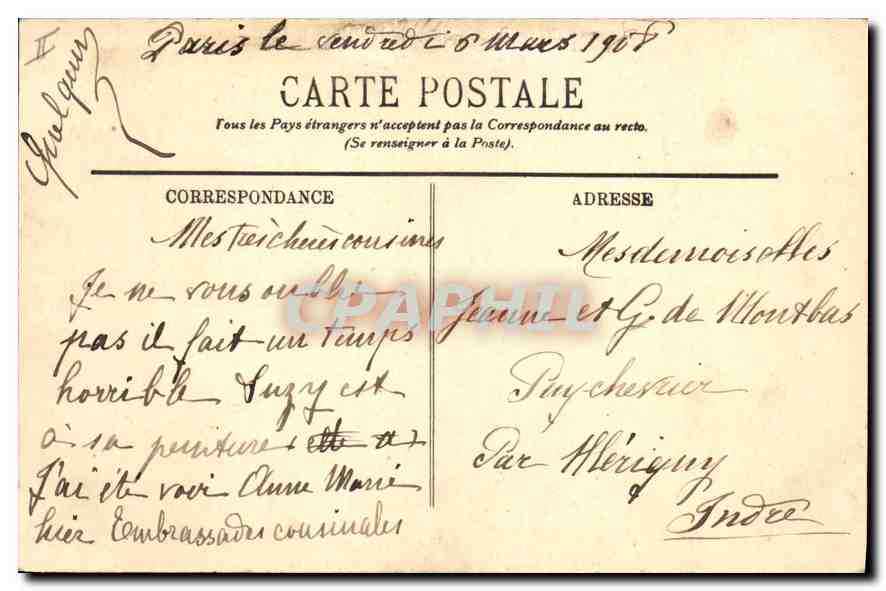 II
Quelqu'un
Paris le vendredi 6 Mars 1908
CARTE POSTALE
Tous les Pays étrangers n'acceptent pas la Correspondance au recto.
(Se renseigner à la Poste).
CORRESPONDANCE
Mes très chères cousines
Je ne vous oublie
pas il fait un temps
horrible Suzy est
à sa peinture
J'ai été voir Anne Marie
hier Embrassades cousinales
ADRESSE
Mesdemoiselles
Jeanne et G. de Montbas
Puychevrier
Par Mérigny
Indre
CPAPHIL